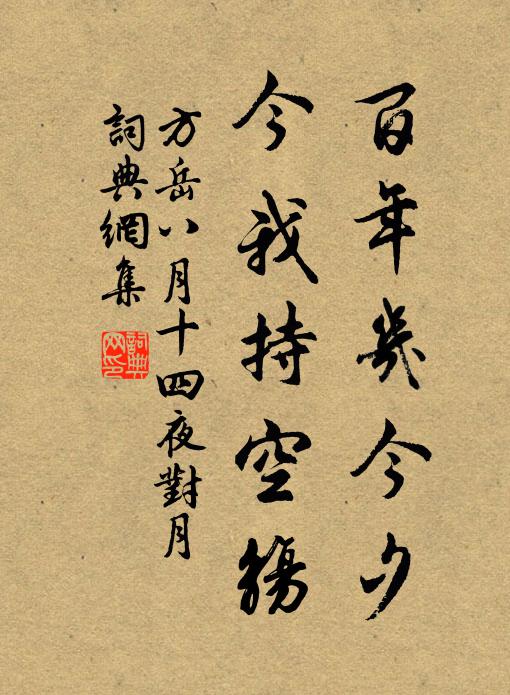 百年幾今夕
今我持空觴
方岳八月十四夜對月
詞典網集
詞典網印